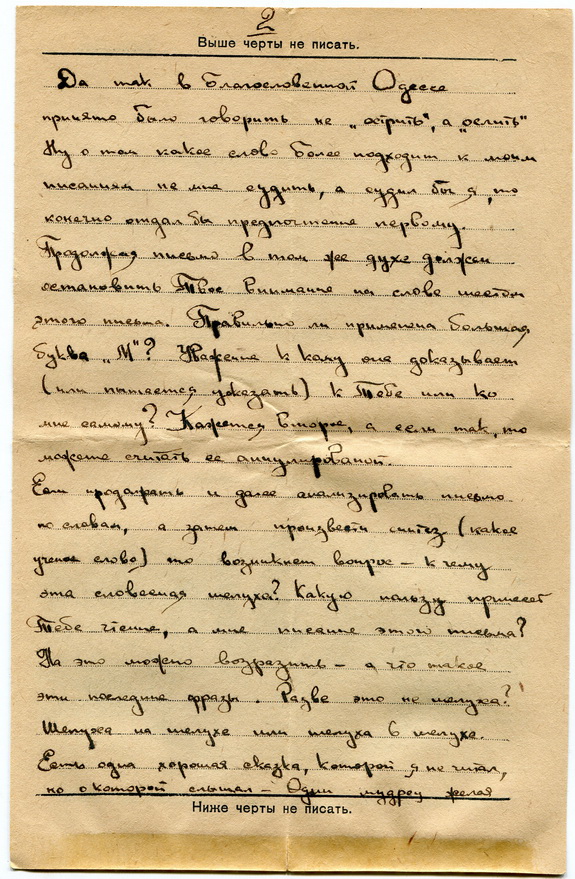 2
Выше черты не писать.
Да так в Благословенной Одессе
принято было говорить не „острить", а „ослить"
Ну о том какое слово более подходит к моим
писаниям не мне судить, а судил бы я, то
конечно отдал бы предпочтение первому.
Продолжая письмо в том же духе должен
остановить Твое внимание на слове
этого письма. Правильно ли применена большая
буква „М"? Уважение к кому она доказывает
(или пытается доказать) к Тебе или ко
мне самому? Кажется второе, а если так, то
можете считать ее анулированой.
Если продолжать и далее анализировать письмо
по словам, а затем произвести синтез (какое
ученое слово) то возникнет вопрос – к чему
эта словесная шелуха? Какую пользу принесет
Тебе чтение, а мне писание этого письма?
На это можно возразить – а что такое
эти последние фразы. Разве это не шелуха?
Шелуха на шелухе или шелуха в шелухе.
Есть одна хорошая сказка, которой я не читал,
но о которой слышал – Один мудрец желая
Ниже черты не писать.